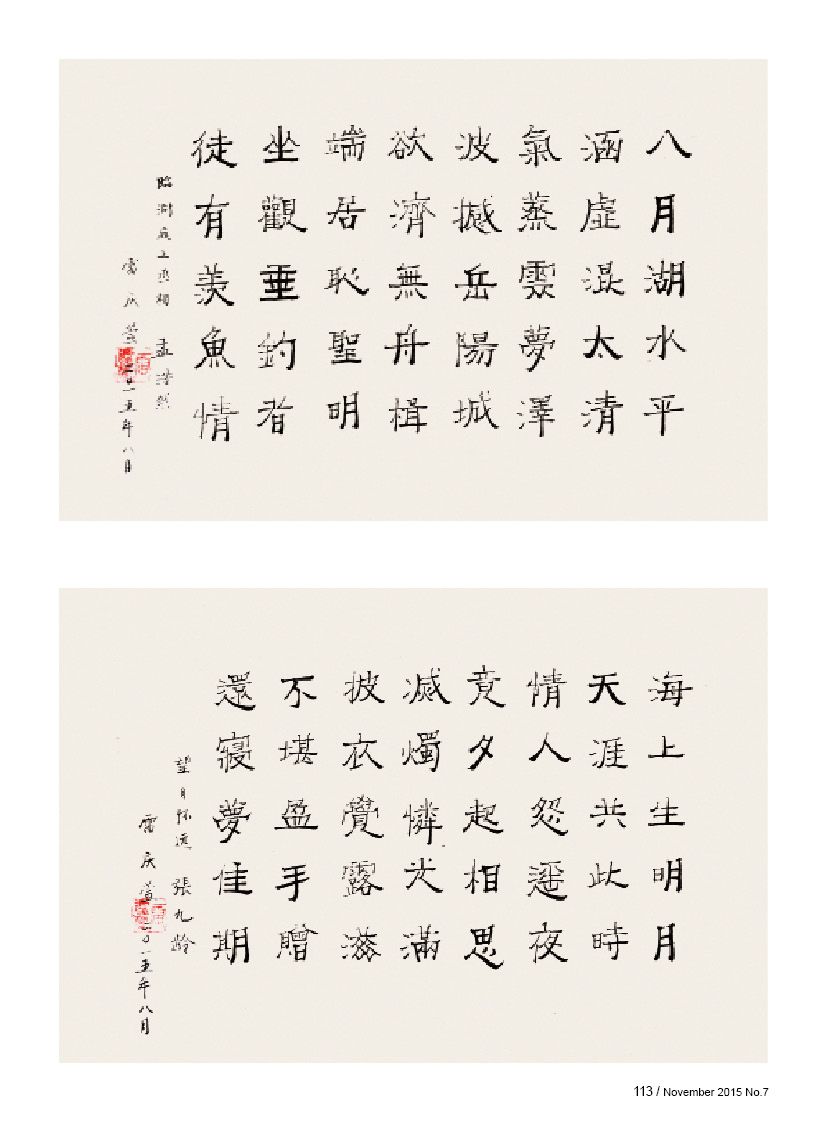 八月湖水平
涵虛混太清
氣蒸雲夢澤
波撼岳陽城
欲濟無舟楫
端居恥聖明
坐觀垂釣者
徒有羨魚情
臨洞庭上丞相 孟浩然
雷庆 二〇一五年八月
海上生明月
天涯共此時
情人怨遥夜
竟夕起相思
滅燭憐光滿
披衣覺露滋
不堪盈手贈
還寢夢佳期
望月怀远 張九齡
雷庆 二〇一五年八月
113 / November 2015 No.7